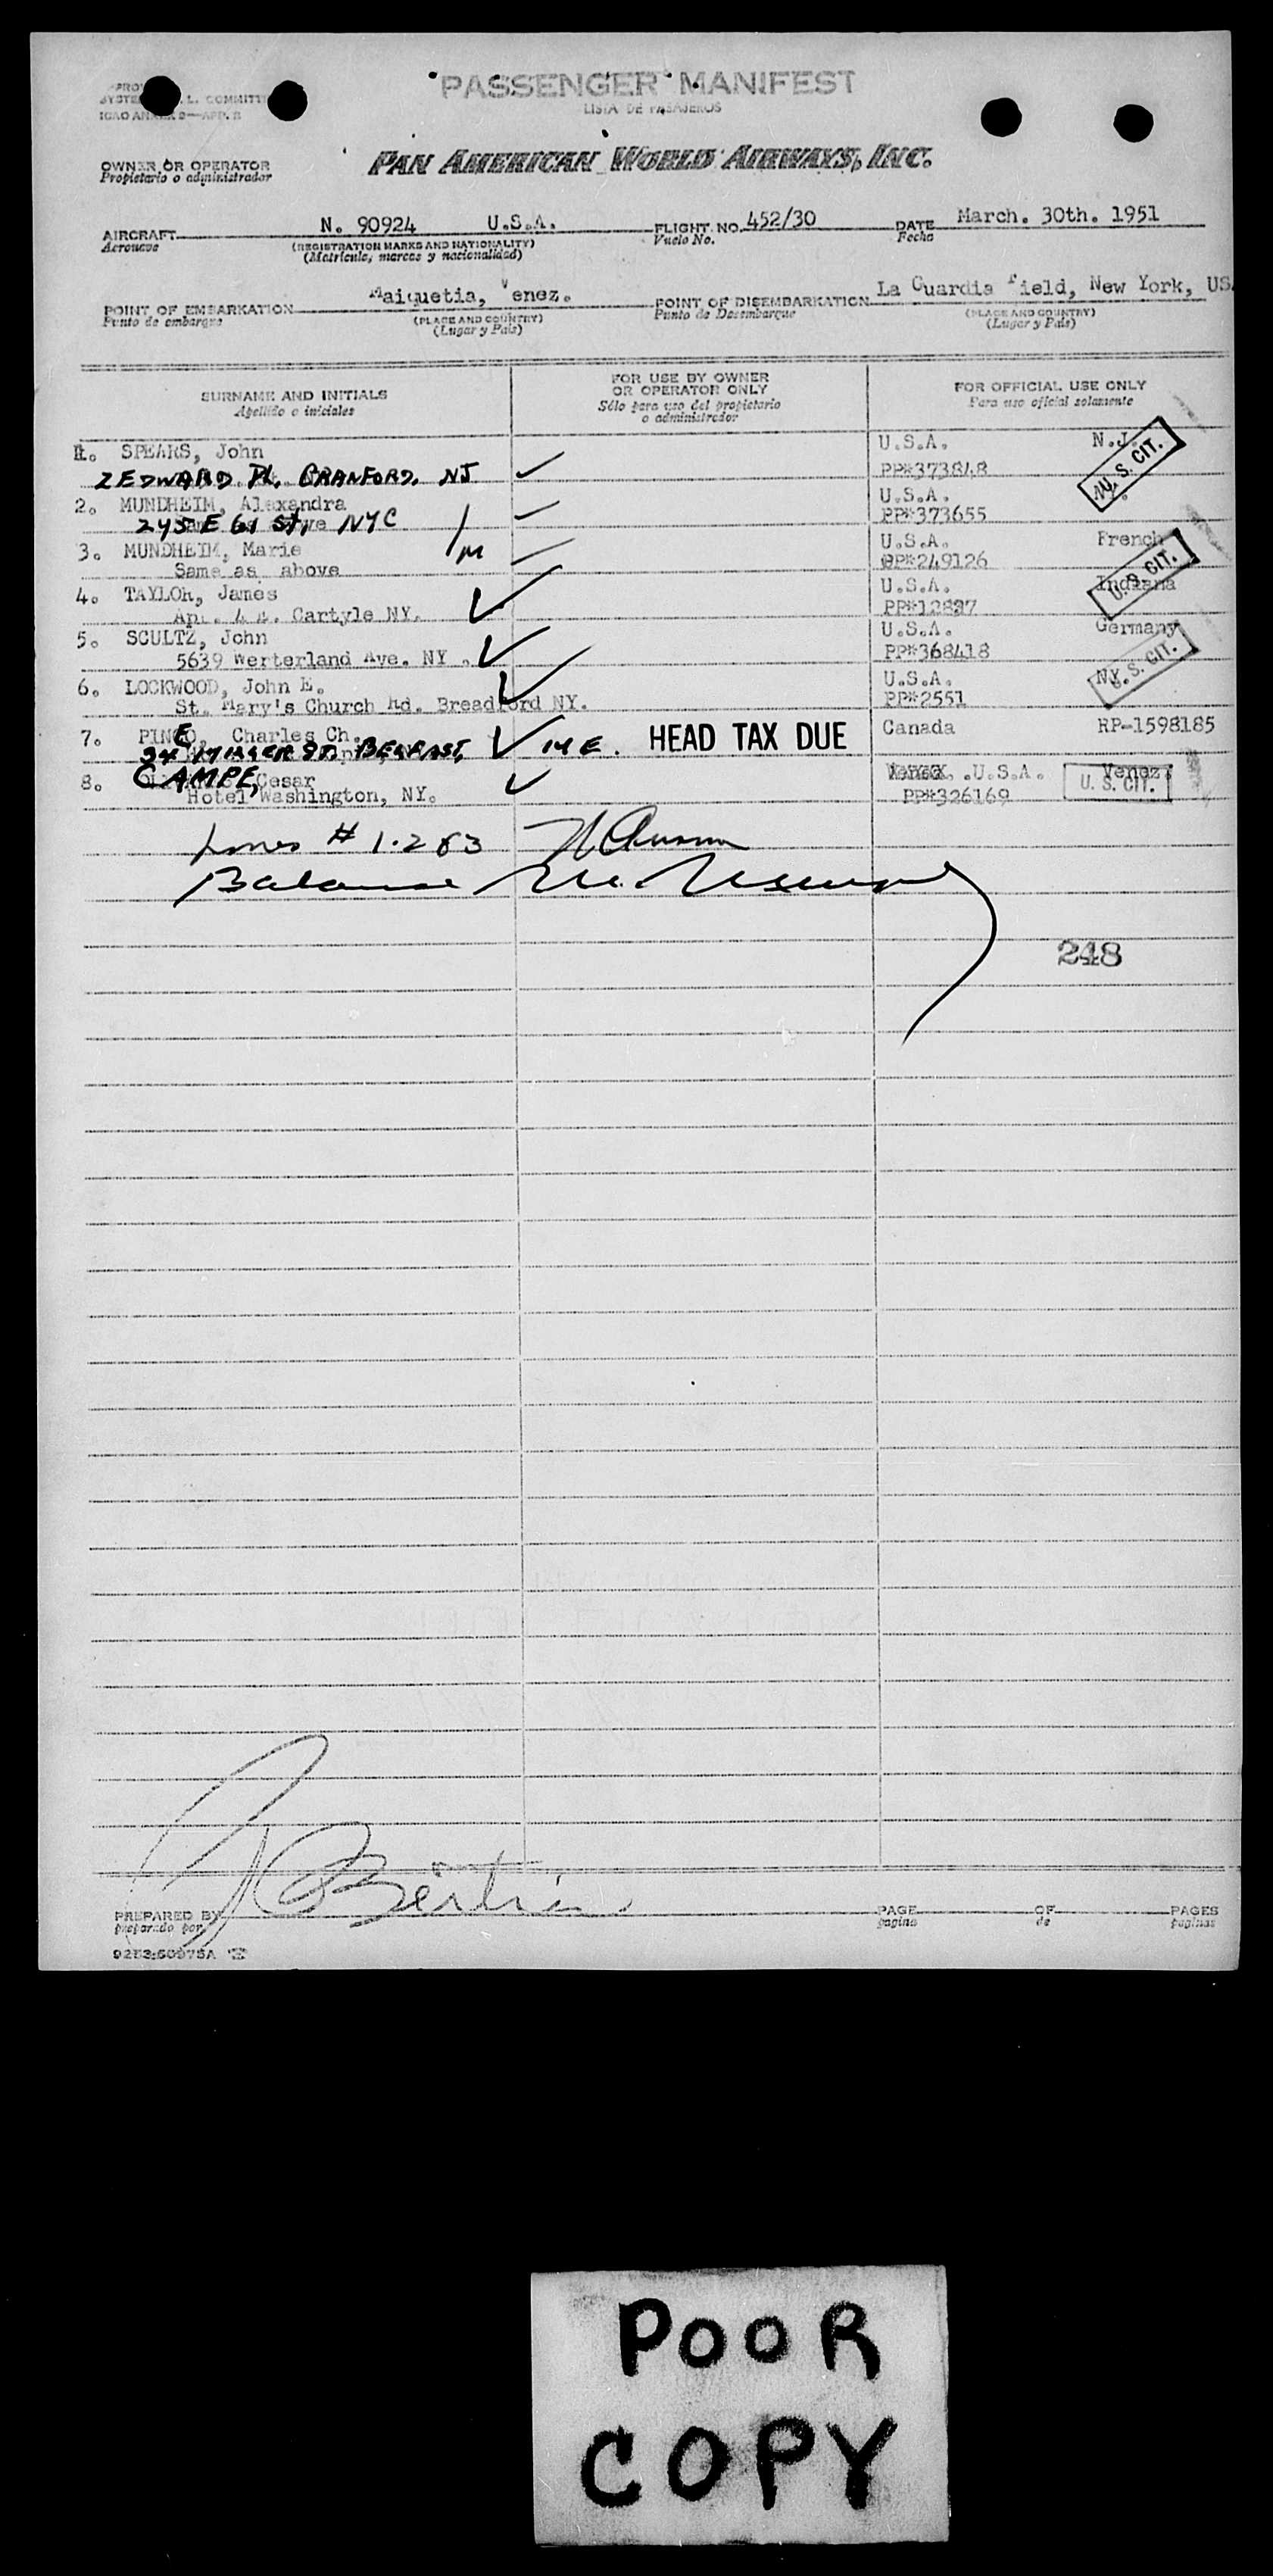 PASSENGER MANIFEST
LISTA DE PASAJEROS
ICAO ANNEX 9—APP. B
OWNER OR OPERATOR
Propietario o administrador
PAN AMERICAN WORLD AIRWAYS, INC.
AIRCRAFT N. 90924 U.S.A. FLIGHT NO. 452/30 DATE March. 30th. 1951
Aeronave (REGISTRATION MARKS AND NATIONALITY) Vuelo No. Fecha
(Matrícula, marcas y nacionalidad)
POINT OF EMBARKATION Maiquetia, Venez. POINT OF DISEMBARKATION La Guardia Field, New York, US
Punto de embarque (PLACE AND COUNTRY) Punto de Desembarque (PLACE AND COUNTRY)
(Lugar y País) (Lugar y País)
SURNAME AND INITIALS FOR USE BY OWNER OR OPERATOR ONLY FOR OFFICIAL USE ONLY
Apellido e iniciales Sólo para uso del propietario o administrador Para uso oficial solamente
1. SPEARS, John U.S.A. N.J.
2 EDWARD PL, CRANFORD, NJ PP#373848 U. S. CIT.
2. MUNDHEIM, Alexandra U.S.A.
245 E 61 St, NYC PP#373655
3. MUNDHEIM, Marie U.S.A. French
Same as above PP#249126 U. S. CIT.
4. TAYLOR, James U.S.A. Indiana
Cartyle NY.
5. SCULTZ, John U.S.A. Germany
5639 Werterland Ave. NY. PP#368418
6. LOCKWOOD, John E. U.S.A. NY. U. S. CIT.
St. Mary's Church Rd. Breadford NY. PP#2551
7. Charles Ch. HEAD TAX DUE Canada RP-1598185
BELFAST, ME.
8. CAMPE, Cesar U.S.A. Venez.
Hotel Washington, NY. PP#326169 U. S. CIT.
Lines # 1-2 & 3
Balance
248
PREPARED BY PAGE OF PAGES
preparado por página de páginas
POOR
COPY